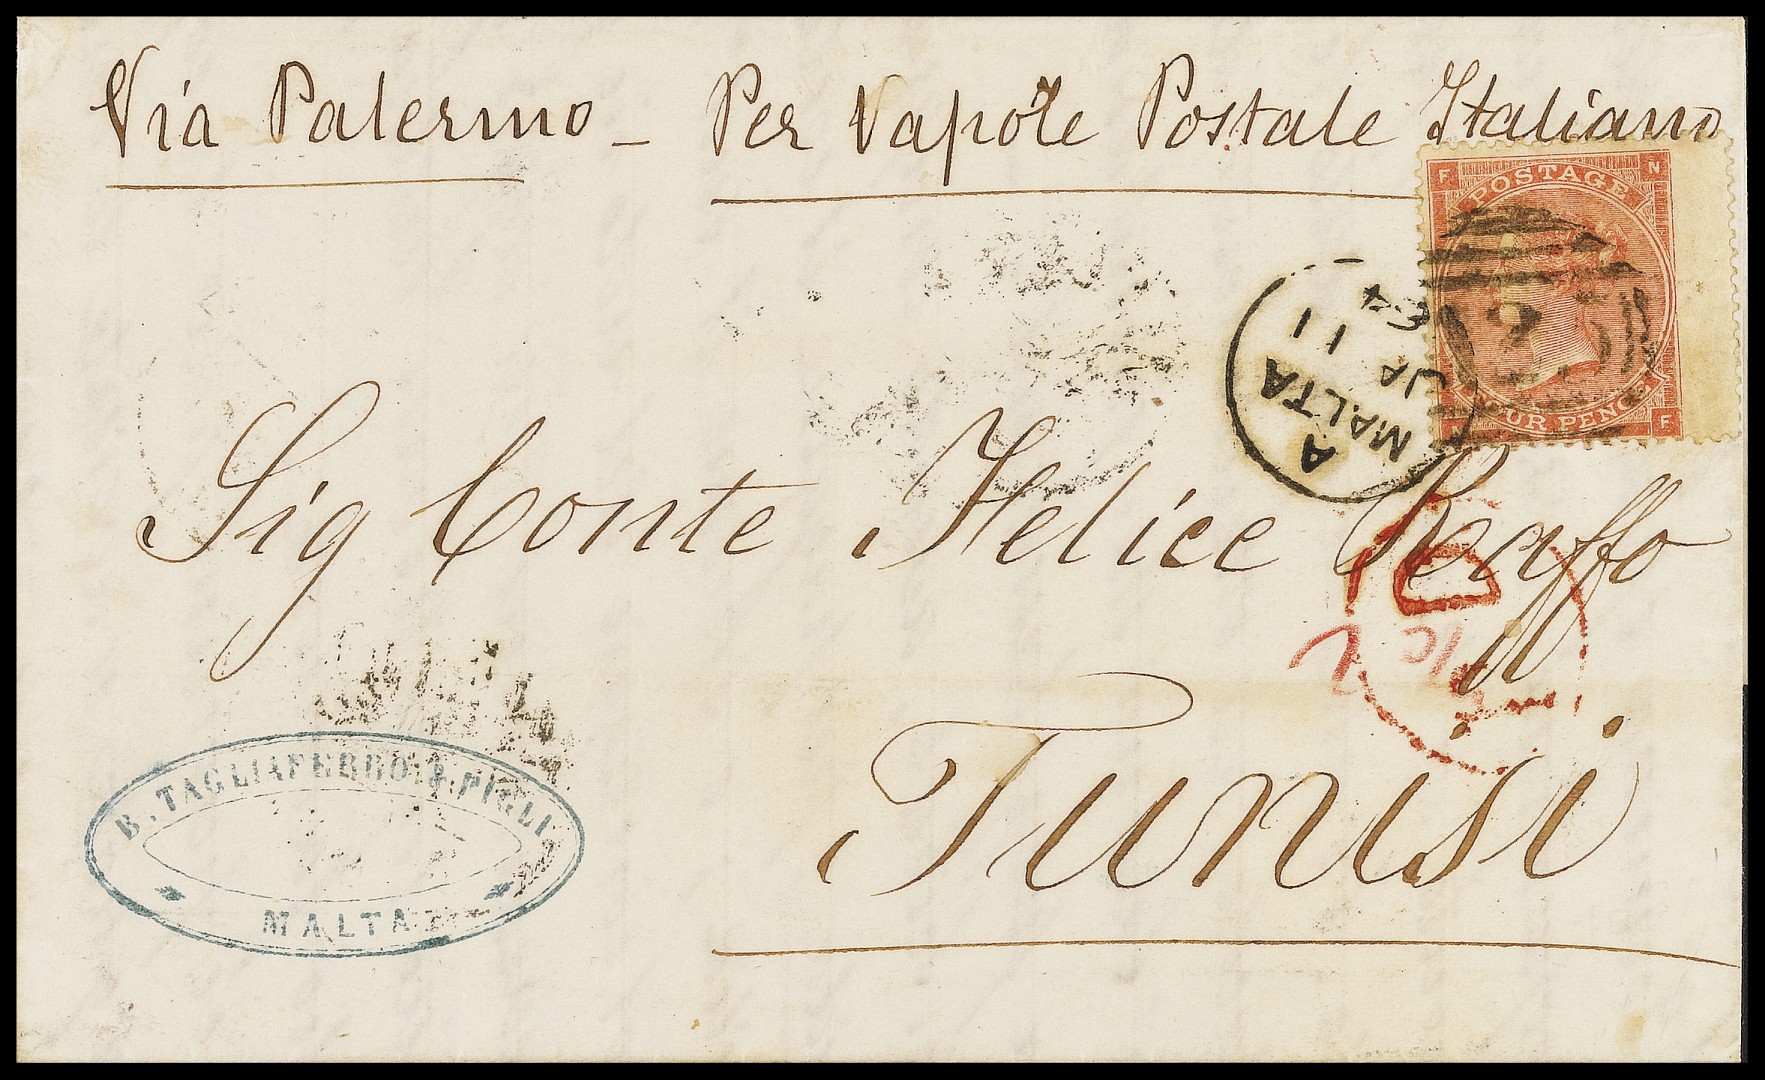 Via Palermo - Per Vapore Postale Italiano
F N
POSTAGE
FOUR PENCE
N F
A
MALTA
MALTA
JA 11
64
Sig Conte Felice Raffo
PD
Tunisi
B. TAGLIAFERRO & FIGLI
MALTA